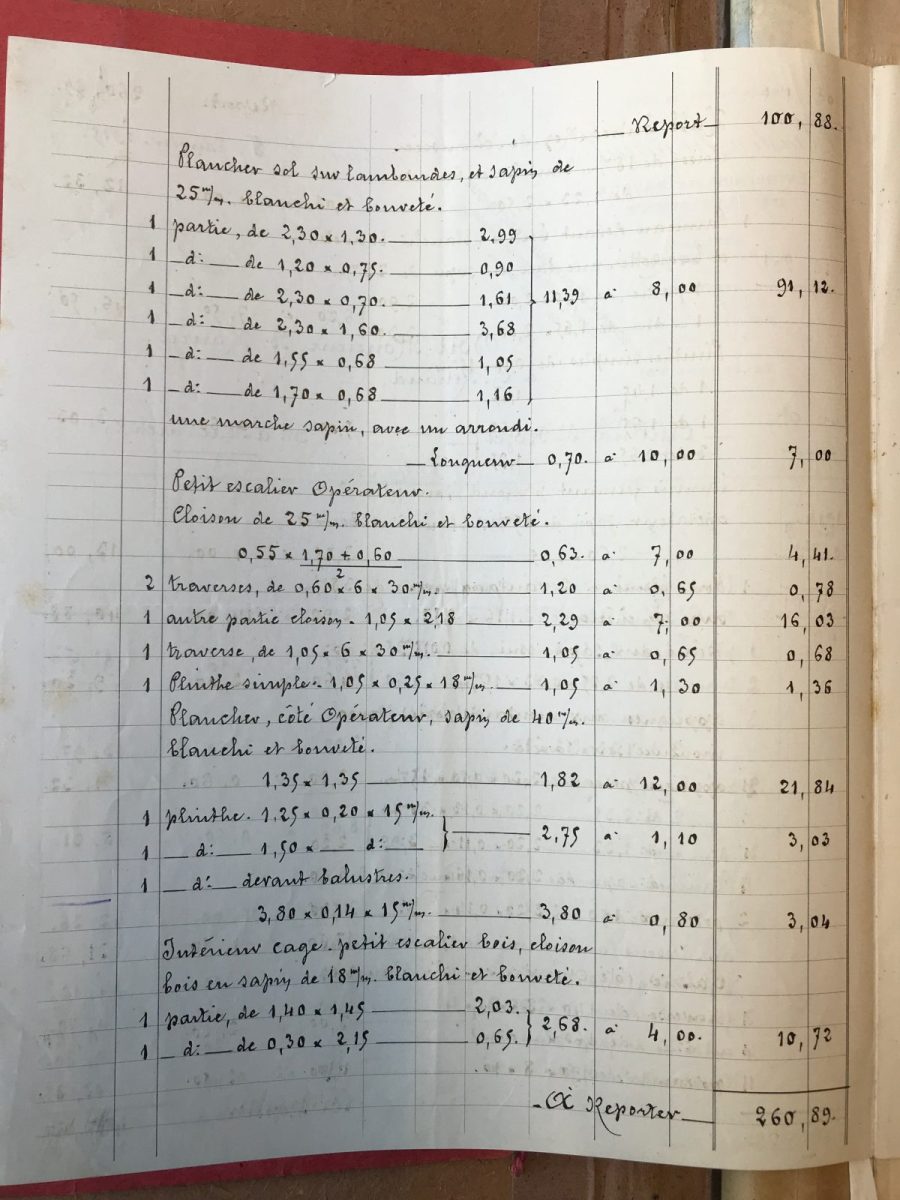 Report 100,88.
Plancher sol sur lambourdes, et sapin de
25 m/m. blanchi et bouveté.
1 partie, de 2,30 × 1,30. 2,99
1 d: de 1,20 × 0,75. 0,90
1 d: de 2,30 × 0,70. 1,61 11,39 à 8,00 91,12.
1 d: de 2,30 × 1,60. 3,68
1 d: de 1,55 × 0,68 1,05
1 d: de 1,70 × 0,68 1,16
une marche sapin, avec un arrondi.
Longueur 0,70. à 10,00 7,00
Petit escalier Opérateur.
Cloison de 25 m/m. blanchi et bouveté.
0,55 × 1,70 + 0,60 / 2 0,63. à 7,00 4,41.
2 traverses, de 0,60 × 6 × 30 m/m. 1,20 à 0,65 0,78
1 autre partie cloison. 1,05 × 2,18 2,29 à 7,00 16,03
1 traverse, de 1,05 × 6 × 30 m/m. 1,05 à 0,65 0,68
1 Plinthe simple. 1,05 × 0,25 × 18 m/m. 1,05 à 1,30 1,36
Plancher, côté Opérateur, sapin de 40 m/m.
blanchi et bouveté.
1,35 × 1,35 1,82 à 12,00 21,84
1 plinthe. 1,25 × 0,20 × 15 m/m.
2,75 à 1,10 3,03
1 d: 1,50 × d:
1 d: devant balustres.
3,80 × 0,14 × 15 m/m. 3,80 à 0,80 3,04
Intérieur cage. petit escalier bois, cloison
bois en sapin de 18 m/m. blanchi et bouveté.
1 partie, de 1,40 × 1,45 2,03.
2,68. à 4,00. 10,72
1 d: de 0,30 × 2,15 0,65.
A Reporter 260,89.